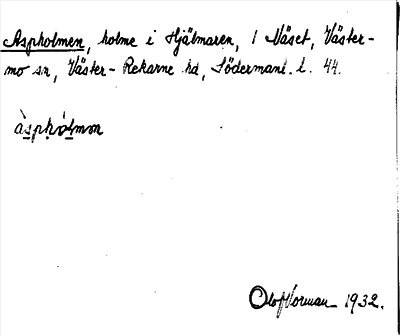 Aspholmen, holme i Hjälmaren, / Näset, Väster-
mo sn, Väster-Rekarne hd, Södermanl. l. 44.
àsphólmơn
Olof Norman 1932.